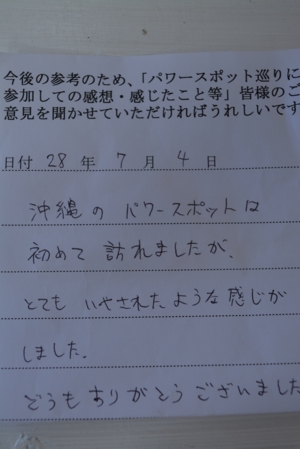 今後の参考のため、「パワースポット巡りに
参加しての感想・感じたこと等」皆様のご
意見を聞かせていただければうれしいです
日付 28 年 7 月 4 日
沖縄の パワースポットは
初めて 訪れましたが、
とても いやされたような感じが
しました。
どうもありがとうございました